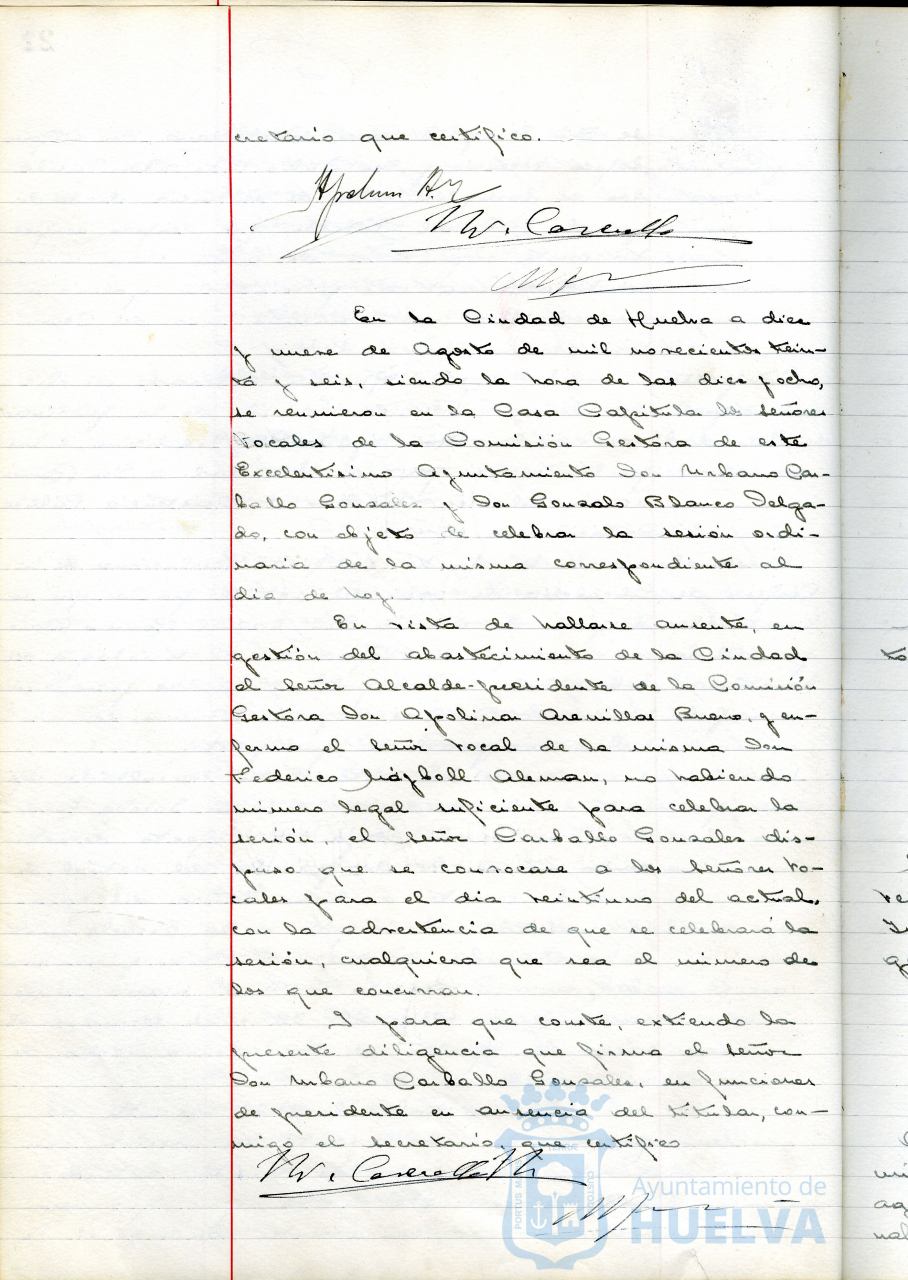 cretario que certifico.
En la Ciudad de Huelva a diez
y nueve de Agosto de mil novecientos trein-
ta y seis, siendo la hora de las diez y ocho,
se reunieron en la Casa Capitular los señores
Vocales de la Comisión Gestora de este
Excelentísimo Ayuntamiento Don Urbano Car-
ballo Gonzales y Don Gonzalo Blanco Delga-
do, con objeto de celebrar la sesión ordi-
naria de la misma correspondiente al
dia de hoy.
En vista de hallarse ausente, en
gestión del abastecimiento de la Ciudad
el Señor Alcalde-presidente de la Comisión
Gestora Don Apolinar Arenillas Bueno, y en-
fermo el Señor Vocal de la misma Don
Federico Aleman, no habiendo
número legal suficiente para celebrar la
sesión, el Señor Carballo Gonzales dis-
puso que se convocase a los Señores Vo-
cales para el dia veintiuno del actual,
con la advertencia de que se celebrará la
sesión, cualquiera que sea el número de
los que concurran.
Y para que conste, extiendo la
presente diligencia que firma el Señor
Don Urbano Carballo Gonzales, en funciones
de presidente en ausencia del titular, con-
migo el Secretario, que certifico
Ayuntamiento de
HUELVA